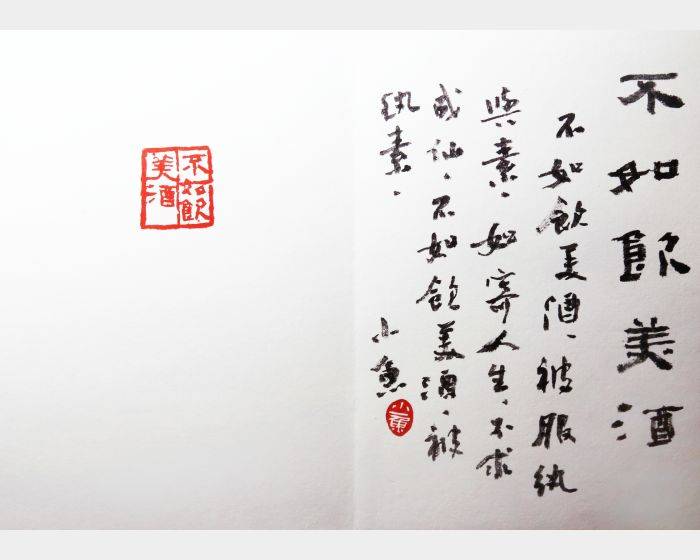 不如飲美酒
不如飲美酒、被服紈
與素、如寄人生、不求
成仙、不如飲美酒、被
紈素、
小魚
小魚
不如飲
美酒